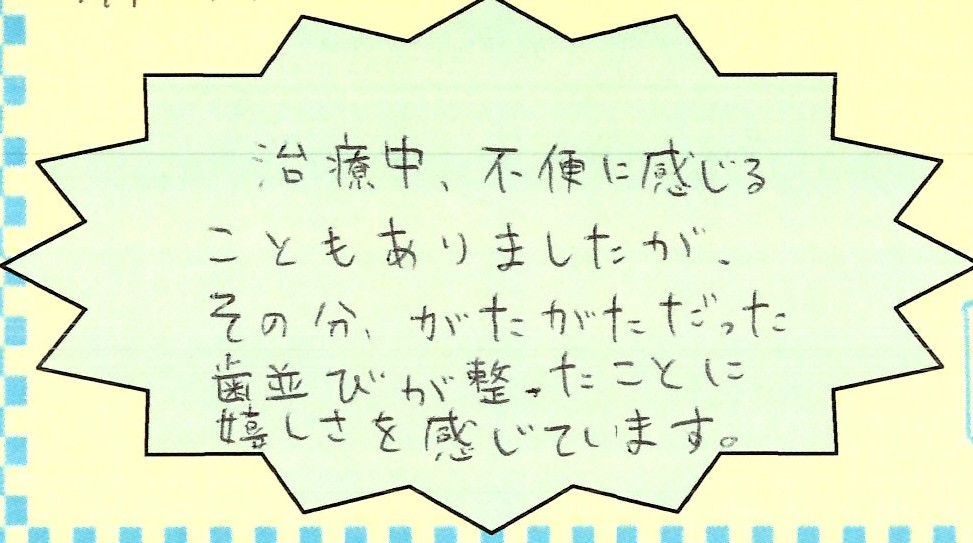 治療中、不便に感じる
こともありましたが、
その分、がたがただった
歯並びが整ったことに
嬉しさを感じています。